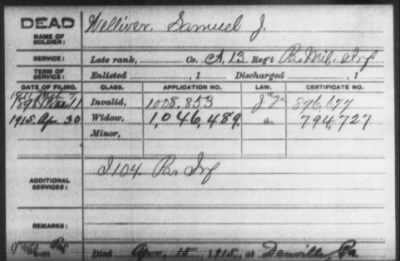 DEAD
NAME OF SOLDIER:
Welliver, Samuel J.
SERVICE:
Late rank, Co. A, 13 Reg't Pa. Mil. Inf
TERM OF SERVICE:
Enlisted , 1 Discharged , 1
DATE OF FILING. CLASS. APPLICATION NO. LAW. CERTIFICATE NO.
1891 Mar 11 Invalid, 1008,853 896,677
1915. Ap. 30 Widow, 1,046,489 a. 794,727
Minor,
ADDITIONAL SERVICES:
I 104 Pa Inf
REMARKS:
Died Apr. 15, 1915, at Danville, Pa